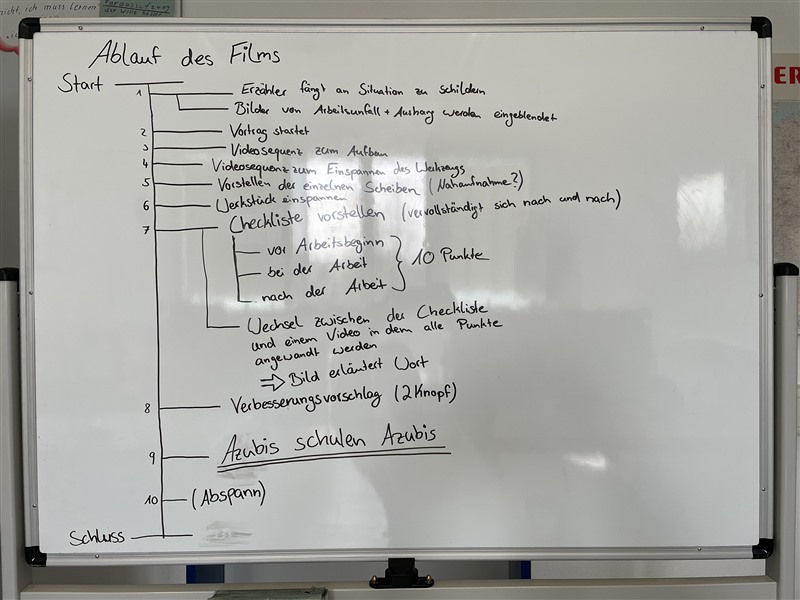 nicht, ich muss lernen
Voraussetzung
ER
Ablauf des Films
Start
1 Erzähler fängt an Situation zu schildern
Bilder von Arbeitsunfall + Aushang werden eingeblendet
2 Vortrag startet
3 Videosequenz zum Aufbau
4 Videosequenz zum Einspannen des Werkzeugs
5 Vorstellen der einzelnen Scheiben (Nahaufnahme?)
6 Werkstück einspannen
7 Checkliste vorstellen (vervollständigt sich nach und nach)
vor Arbeitsbeginn
bei der Arbeit } 10 Punkte
nach der Arbeit
Wechsel zwischen der Checkliste
und einem Video in dem alle Punkte
angewandt werden
⇒ Bild erläutert Wort
8 Verbesserungsvorschlag (2 Knopf)
9 Azubis schulen Azubis
10 (Abspann)
Schluss